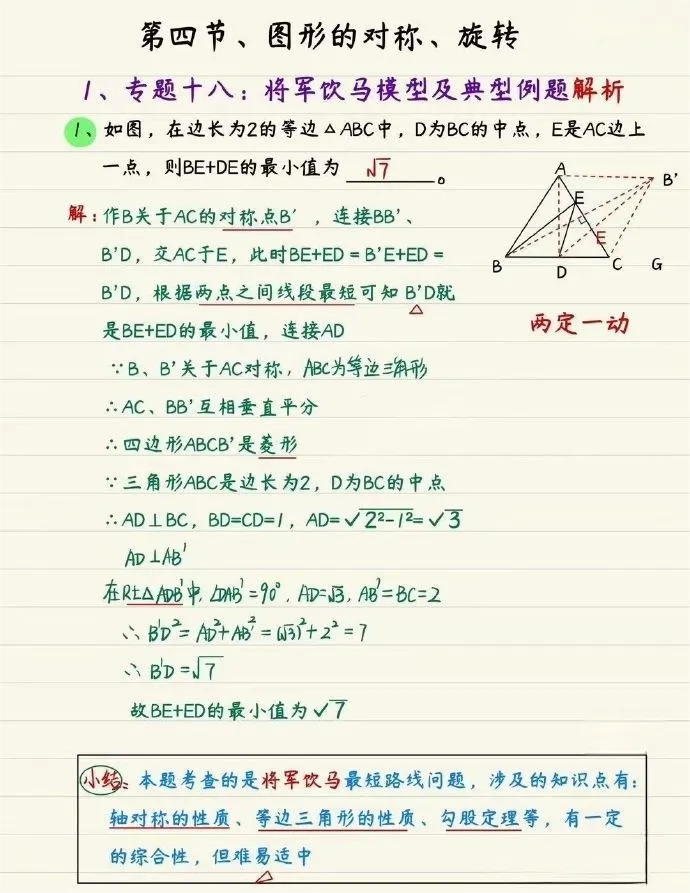 第四节、图形的对称、旋转
1、专题十八：将军饮马模型及典型例题解析
1、如图，在边长为2的等边△ABC中，D为BC的中点，E是AC边上
一点，则BE+DE的最小值为 √7 。
A
B'
E
E
B
D
C
G
两定一动
解：作B关于AC的对称点B'，连接BB'、
B'D，交AC于E，此时BE+ED=B'E+ED=
B'D，根据两点之间线段最短可知B'D就
是BE+ED的最小值，连接AD
∵B、B'关于AC对称，ABC为等边三角形
∴AC、BB'互相垂直平分
∴四边形ABCB'是菱形
∵三角形ABC是边长为2，D为BC的中点
∴AD⊥BC，BD=CD=1，AD=√2²-1²=√3
AD⊥AB'
在Rt△ADB'中，∠DAB'=90°，AD=√3，AB'=BC=2
∴B'D²=AD²+AB'²=(√3)²+2²=7
∴B'D=√7
故BE+ED的最小值为√7
小结：本题考查的是将军饮马最短路线问题，涉及的知识点有：
轴对称的性质、等边三角形的性质、勾股定理等，有一定
的综合性，但难易适中